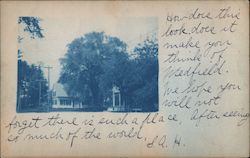 How does this
look does it
make you
think of
Medfield.
We hope you
will not
forget there is such a place. After seeing
so much of the world. I. A. H.